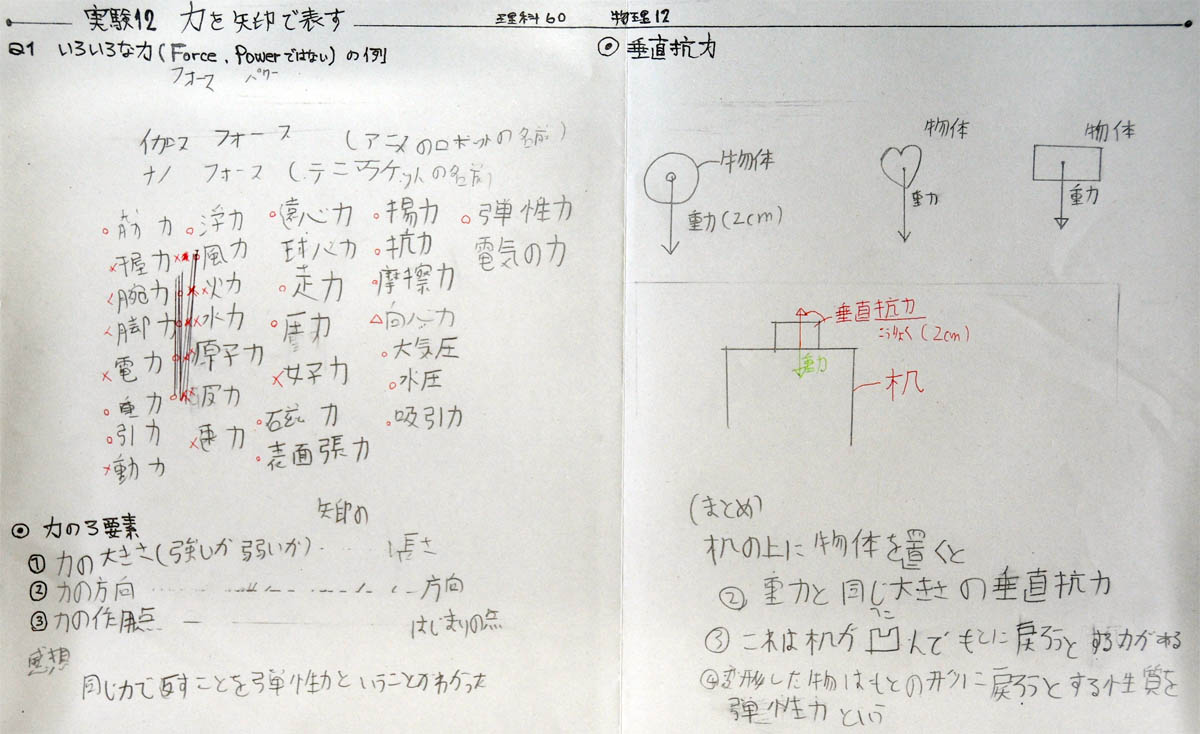 実験12 力を矢印で表す
理科60 物理12
Q1 いろいろな力(Force、Powerではない)の例
フォース パワー
フォース (アニメのロボットの名前)
ナノ フォース (テニスラケットの名前)
○筋力 ○浮力 ○遠心力 ○揚力 ○弾性力
×握力 ×風力 球心力 ○抗力 電気の力
×腕力 ×火力 ○走力 ○摩擦力
×脚力 ×水力 ○圧力 △向心力
×電力 原子力 ×女子力 ○大気圧
○重力 反力 ○磁力 ○水圧
○引力 ×速力 ○表面張力 ○吸引力
×動力
◎ 力の3要素
矢印の
① 力の大きさ(強いか弱いか)……長さ
② 力の方向……方向
③ 力の作用点……はじまりの点
感想
同じ力で返すことを弾性力ということがわかった
◎ 垂直抗力
物体
重力(2cm)
物体
重力
物体
重力
垂直抗力
こうりょく(2cm)
重力
机
(まとめ)
机の上に物体を置くと
② 重力と同じ大きさの垂直抗力
へこ
③ これは机が凹んでもとに戻ろうとする力がある
④ 変形した物はもとの形に戻ろうとする性質を
弾性力という